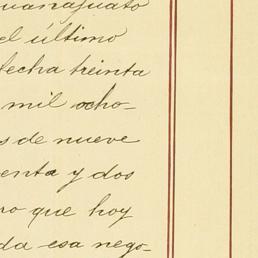 uanajuato
el último
fecha treinta
mil ocho-
s de nueve
enta y dos
ro que hoy
da esa nego-